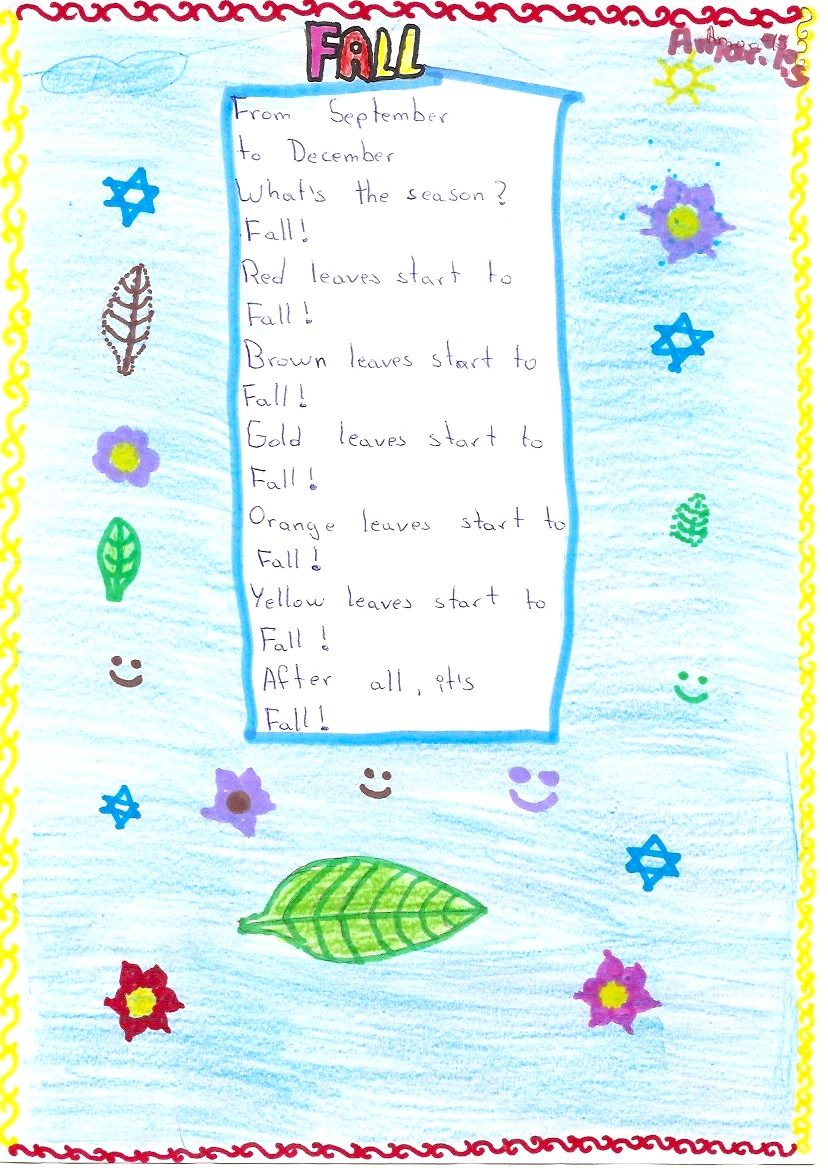 FALL
From September
to December
What's the season?
Fall!
Red leaves start to
Fall!
Brown leaves start to
Fall!
Gold leaves start to
Fall!
Orange leaves start to
Fall!
Yellow leaves start to
Fall!
After all, it's
Fall!